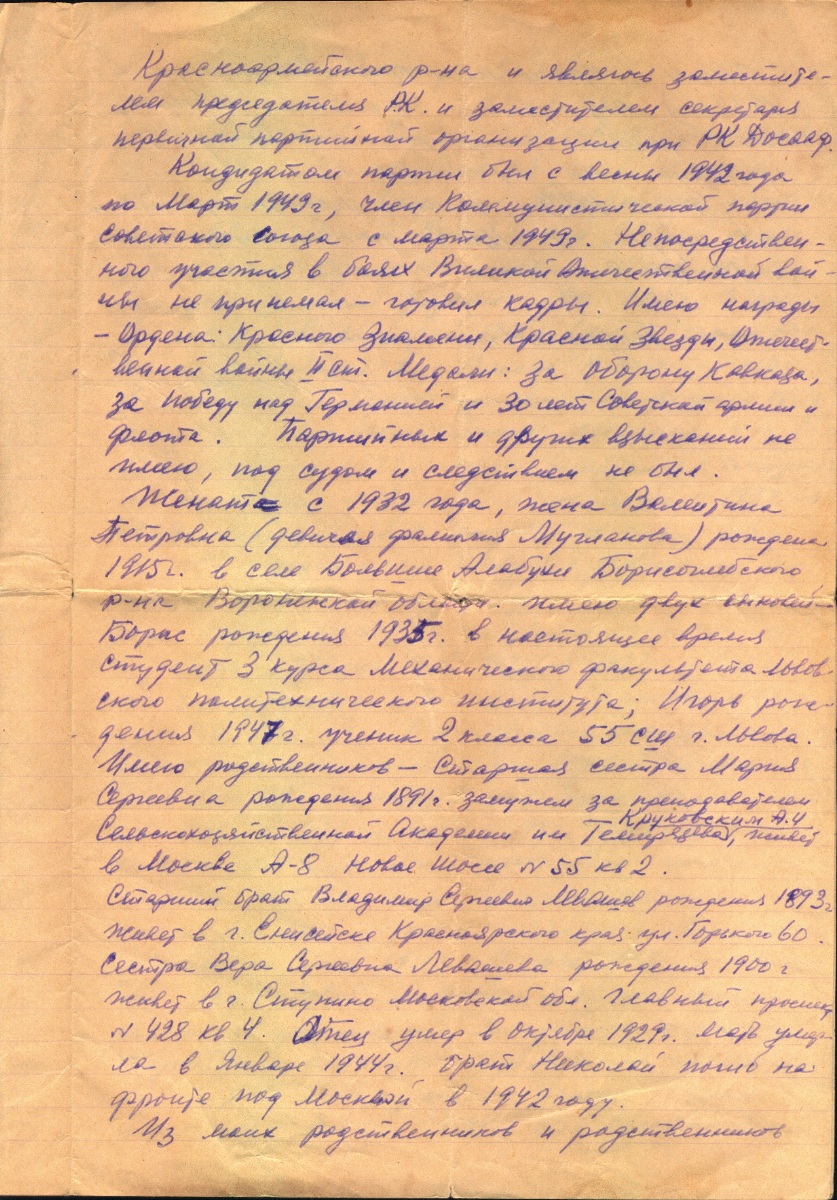 Красноармейского р-на и являюсь заместите-
лем председателя РК. и заместителем секретаря
первичной партийной организации при РК Досааф.
Кандидатом партии был с весны 1942 года
по Март 1949г, член Коммунистической партии
Советского Союза с марта 1949г. Непосредствен-
ного участия в боях Великой Отечественной вой-
ны не принемал – готовил кадры. Имею награды
– Ордена: Красного Знамени, Красной Звезды, Отечест-
венной войны II ст. Медали: За Оборону Кавказа,
за победу над Германией и 30 лет Советской армии и
флота. Партийных и других взысканий не
имею, под судом и следствием не был.
Женат с 1932 года, жена Валентина
Петровна (девичая фамилия Мучланова) рождена
1915г. в селе Большие Алабухи Борисоглебского
р-на Воронежской области. имею двух сыновей –
Борис рождения 1935г. в настоящее время
студент 3 курса Механического факультета Львов-
ского политехнического института; Игорь рож-
дения 1947г. ученик 2 класса 55 сш г. Львова.
Имею родственников – Старшая сестра Мария
Сергеевна рождения 1891г. замужем за преподавателем
Круковским А.И
Сельскохозяйственной Академии им Темирязева, живёт
в Москве А-8 Новое шоссе № 55 кв 2.
Старший брат Владимир Сергеевич Левашев рождения 1893г
живет в г. Енисейске Красноярского края ул. Горького 60.
Сестра Вера Сергеевна Левашева рождения 1900г
живет в г. Ступино Московской обл. Главный проспект
№ 428 кв 4. Отец умер в октябре 1929г. мать умер-
ла в Январе 1944г. брат Николай погиб на
фронте под Москвой в 1942 году.
Из моих родственников и родственников